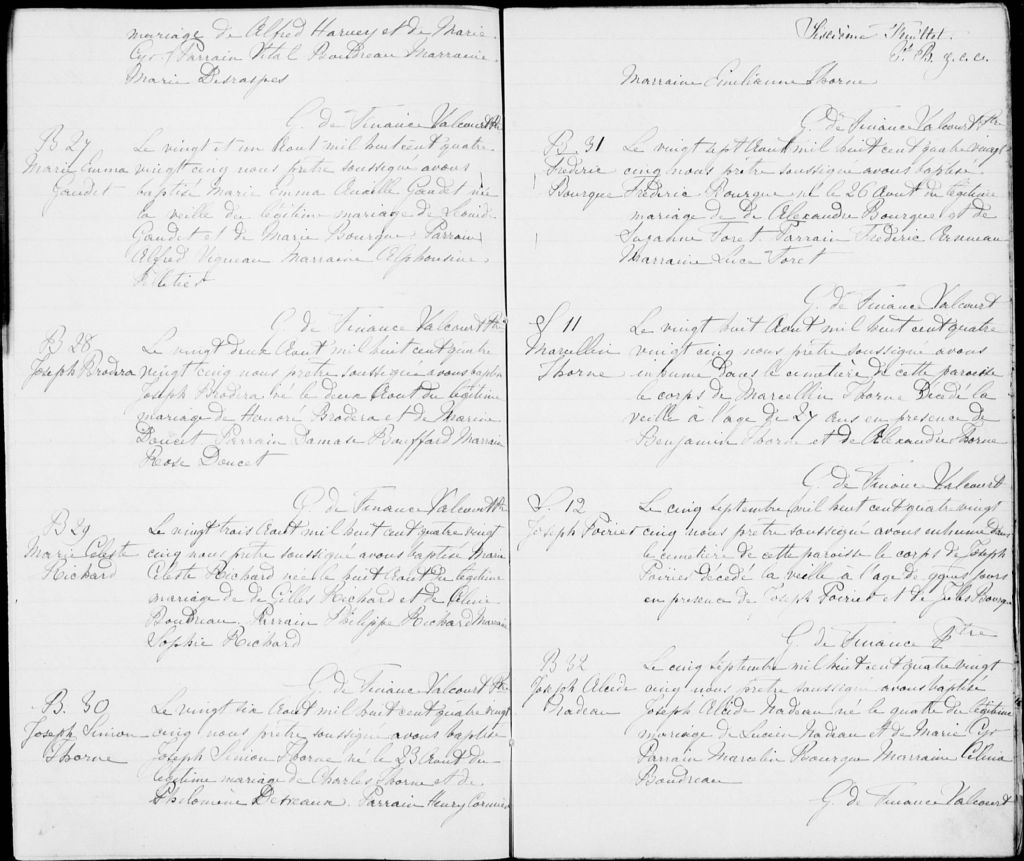 mariage de Alfred Harvey et de Marie
Cyr Parrain Vital Boudreau Marraine
Marie Desraspes
G. de Finance Valcourt Ptre
B 27
Marie Emma
Gaudet
Le vingt et un Aout mil huit cent quatre
vingt cinq nous prêtre soussigné avons
baptisé Marie Emma Gaudet née
la veille du légitime mariage de
Gaudet et de Marie Bourque Parrain
Alfred Vigneau Marraine Alphonsine
Pelletier
G. de Finance Valcourt Ptre
B 28
Joseph Brodera
Le vingt deux Aout mil huit cent quatre
vingt cinq nous prêtre soussigné avons baptisé
Joseph Brodera né le deux Aout du légitime
mariage de Honoré Brodera et de Marine
Doucet Parrain Damase Bouffard Marraine
Rose Doucet
G. de Finance Valcourt Ptre
B 29
Marie Celeste
Richard
Le vingt trois Aout mil huit cent quatre vingt
cinq nous prêtre soussigné avons baptisé Marie
Celeste Richard née le huit Aout du légitime
mariage de de Gilles Richard et de Célinie
Boudreau. Parrain Philippe Richard Marraine
Sophie Richard
G. de Finance Valcourt Ptre
B. 30
Joseph Simion
Thorne
Le vingt six Aout mil huit cent quatre vingt
cinq nous prêtre soussigné avons baptisé
Joseph Simion Thorne né le 23 Aout du
légitime mariage de Charles Thorne et de
Philomène Devreaux. Parrain Henry Cormier
Treizième Feuillet.
P. B. g.c.c.
Marraine Emilienne Thorne
G. de Finance Valcourt Ptre
B 31
Frédéric
Bourque
Le vingt sept Aout mil huit cent quatre vingt
cinq nous prêtre soussigné avons baptisé
Fréderic Bourque né le 26 Aout du légitime
mariage de de Alexandre Bourque et de
Suzanne Foret. Parrain Fréderic Arseneau
Marraine Luce Foret
G. de Finance Valcourt
S 11
Marcellin
Thorne
Le vingt huit Aout mil huit cent quatre
vingt cinq nous prêtre soussigné avons
inhumé dans le cimetière de cette paroisse
le corps de Marcellin Thorne décédé la
veille à l'age de 27 ans en presence de
Benjamin Thorne et de Alexandre Thorne
G. de Finance Valcourt
S. 12
Joseph Poirier
Le cinq septembre mil huit cent quatre vingt
cinq nous prêtre soussigné avons inhumé dans
le cemetière de cette paroisse le corps de Joseph
Poirier décédé la veille à l'age de jours
en presence de Joseph Poirier et de Jules Bourque
G. de Finance Ptre
B 32
Joseph Alcide
Nadeau
Le cinq septembre mil huit cent quatre vingt
cinq nous prêtre soussigné avons baptisé
Joseph Alcide Nadeau né le quatre du légitime
mariage de Lucien Nadeau et de Marie Cyr
Parrain Marcelin Bourque Marraine Célina
Boudreau
G. de Finance Valcourt